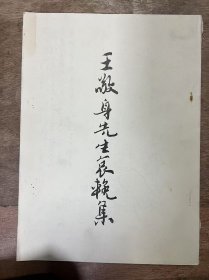 王敬身先生哀輓集